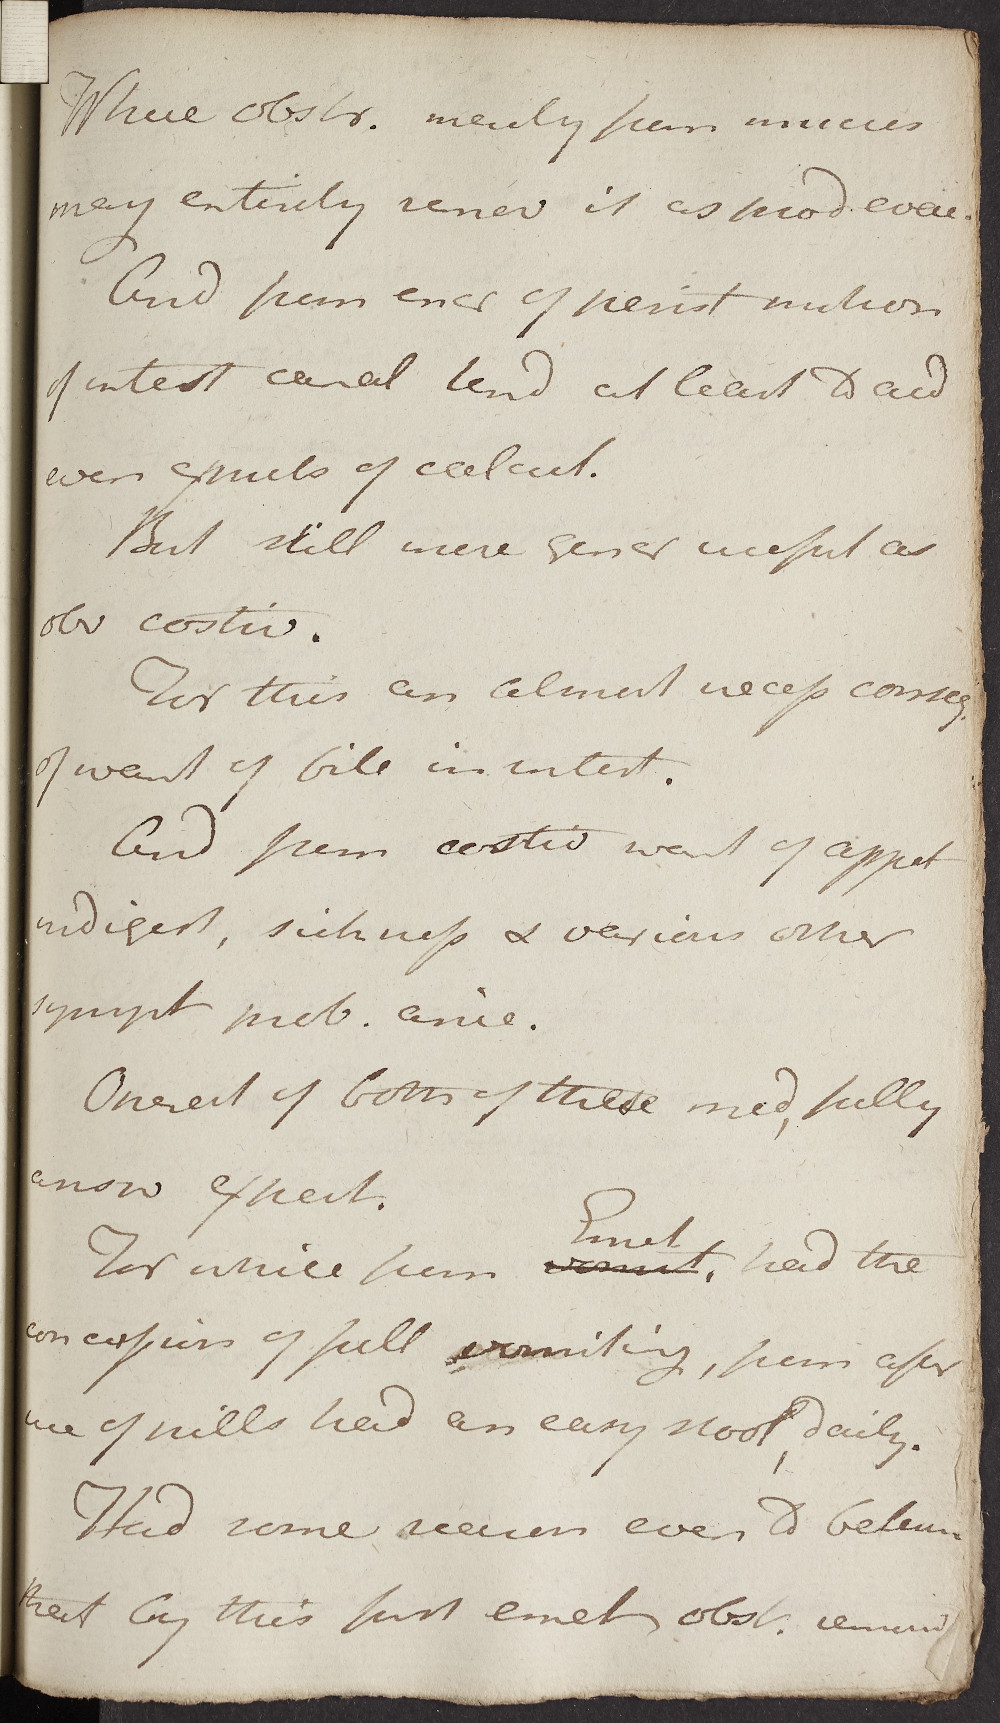 Where obstr. merely from mucus
may entirely remov it as prod. evac.
And from encr of perist motion
of intest canal tend at least to aid
even expuls of calcul.
But still more gener useful as
obv costiv.
For this an almost necess conseq.
of want of bile in intest.
And from costiv want of appet
indigest, sickness & various other
sympt prob. arise.
Operat of both of these med, fully
answ expect.
For while from vomit, Emet had the
concussion of full vomiting, from after
use of pills had an easy stool, daily.
Had some reason even to believ
that by this first emet obst. remov'd